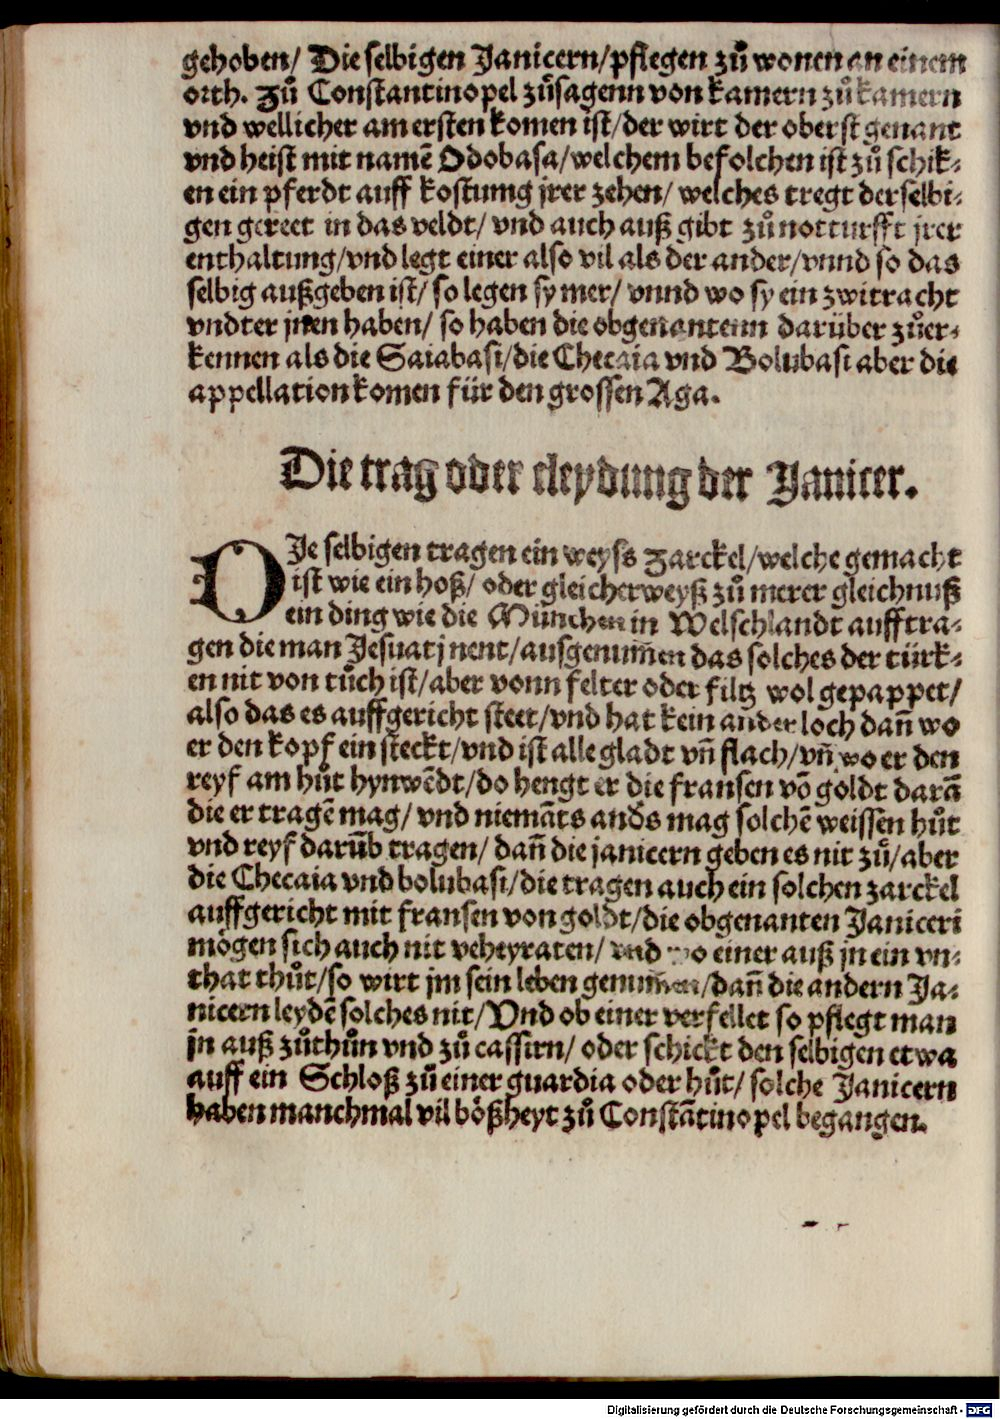 gehoben/ Die selbigen Janicern/pflegen zů wonen an einem
orth. Zů Constantinopel zůsagenn von kamern zů kamern
vnd wellicher am ersten komen ist/der wirt der oberst genant
vnd heist mit namẽ Odobasa/welchem befolchen ist zů schik⸗
en ein pferdt auff kostung jrer zehen/ welches tregt derselbi⸗
gen gereet in das veldt/ vnd auch auß gibt zů notturfft jrer
enthaltung/vnd legt einer also vil als der ander/vnnd so das
selbig außgeben ist/ so legen sy mer/ vnnd wo sy ein zwitracht
vndter jnen haben/ so haben die obgenantenn darüber zůer⸗
kennen als die Saiabasi/die Checaia vnd Bolubasi aber die
appellation komen für den grossen Aga.
Die trag oder cleydung der Janicer.
DJe selbigen tragen ein weyss Zarckel/welche gemacht
ist wie ein hoß/ oder gleicherweyß zů merer gleichnuß
ein ding wie die München in Welschlandt aufftra⸗
gen die man Jesuatj nent/ausgenum̃en das solches der türk⸗
en nit von tůch ist/aber vonn felter oder filtz wol gepappet/
also das es auffgericht steet/vnd hat kein ander loch dañ wo
er den kopf ein steckt/vnd ist alle gladt vñ flach/vñ wo er den
reyf am hůt hynwẽdt/do hengt er die fransen võ goldt darã
die er tragẽ mag/ vnd niemãts anders mag solchẽ weissen hůt
vnd reyf darũb tragen/ dañ die janicern geben es nit zů/aber
die Checaia vnd bolubasi/die tragen auch ein solchen zarckel
auffgericht mit fransen von goldt/die obgenanten Janiceri
mögen sich auch nit veheyraten/ vnd wo einer auß jn ein vn⸗
that thůt/so wirt jm sein leben genum̃en/dañ die andern Ja⸗
nicern leydẽ solches nit/Vnd ob einer verfellet so pflegt man
jn auß zůthůn vnd zů cassirn/ oder schickt den selbigen etwa
auff ein Schloß zů einer guardia oder hůt/ solche Janicern
haben manchmal vil bößheyt zů Constãtinopel begangen.
Digitalisierung gefördert durch die Deutsche Forschungsgemeinschaft - DFG